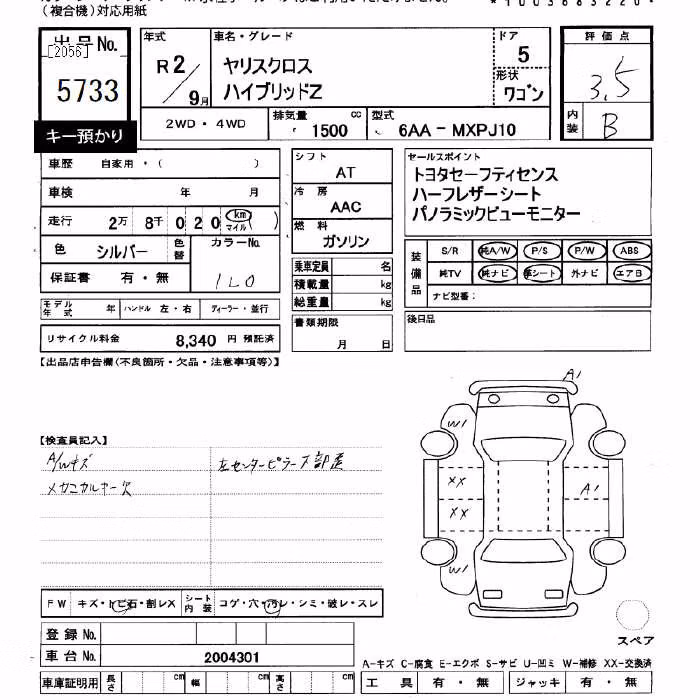 (複合機)対応用紙
*1003683220*
出品No.
[2056]
5733
キー預かり
年式
R2/9月
車名・グレード
ヤリスクロス
ハイブリッドZ
ドア
5
形状
ワゴン
評価点
3.5
内装
B
2WD・4WD
排気量
1500 cc
型式
6AA-MXPJ10
車歴 自家用・( )
車検 年 月
走行 2万 8千 0 2 0 km マイル ( )
色 シルバー 色替 カラーNo.
1L0
保証書 有・無
モデル年式 年 ハンドル 左・右 ディーラー・並行
リサイクル料金 8,340 円 預託済
シフト
AT
冷房
AAC
燃料
ガソリン
乗車定員 名
積載量 kg
総重量 kg
書類期限
月 日
セールスポイント
トヨタセーフティセンス
ハーフレザーシート
パノラミックビューモニター
装備品
S/R 純A/W P/S P/W ABS
純TV 純ナビ 革シート 外ナビ エアB
ナビ型番:
後日品
【出品店申告欄(不良箇所・欠品・注意事項等)】
【検査員記入】
A/Wキズ
メカニカルキー欠
左センターピラーS部歪
A1
W1
XX
XX
A1
W1
スペア
FW キズ・トビ石・割レX
シート内装 コゲ・穴・汚レ・シミ・破レ・スレ
登録No.
車台No. 2004301
車庫証明用 長さ cm 幅 cm 高さ cm
A-キズ C-腐食 E-エクボ S-サビ U-凹ミ W-補修 XX-交換済
工具 有・無 ジャッキ 有・無